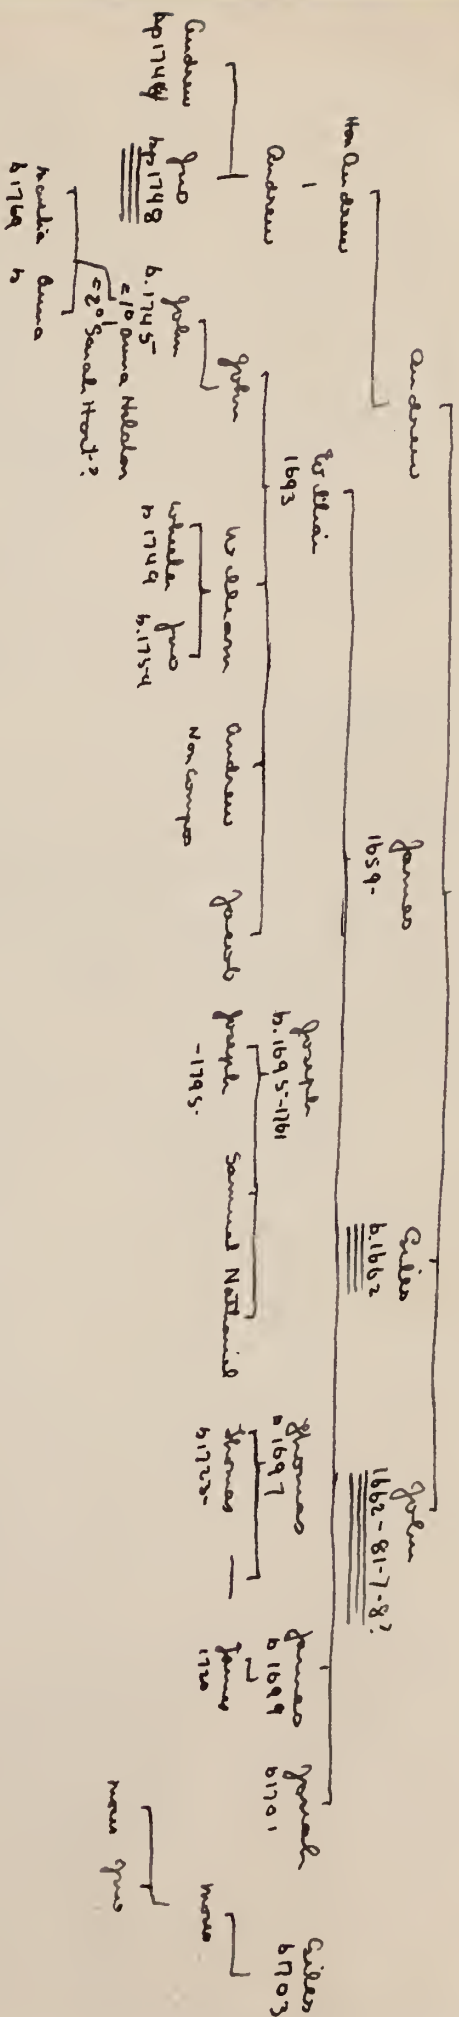 Andrew
James
1659-
Giles
b.1662
John
1662-81-7-8?
Hon Andrew
William
1693
Joseph
b.1695-1761
Thomas
b1697
James
b1699
Josiah
b1701
Giles
b1703
Andrew
John
William
Andrew
Non Compos
Jacob
Joseph
-1795-
Samuel Nathaniel
Thomas
b1723-
James
1720
Moses
Andrew
bp1744
Jno
bp1748
John
b.1745
=1º Anna
=2º Sarah Hart-?
Wheeler
b1749
Jno
b.1754
Moses Jno
b1769
Anna
b